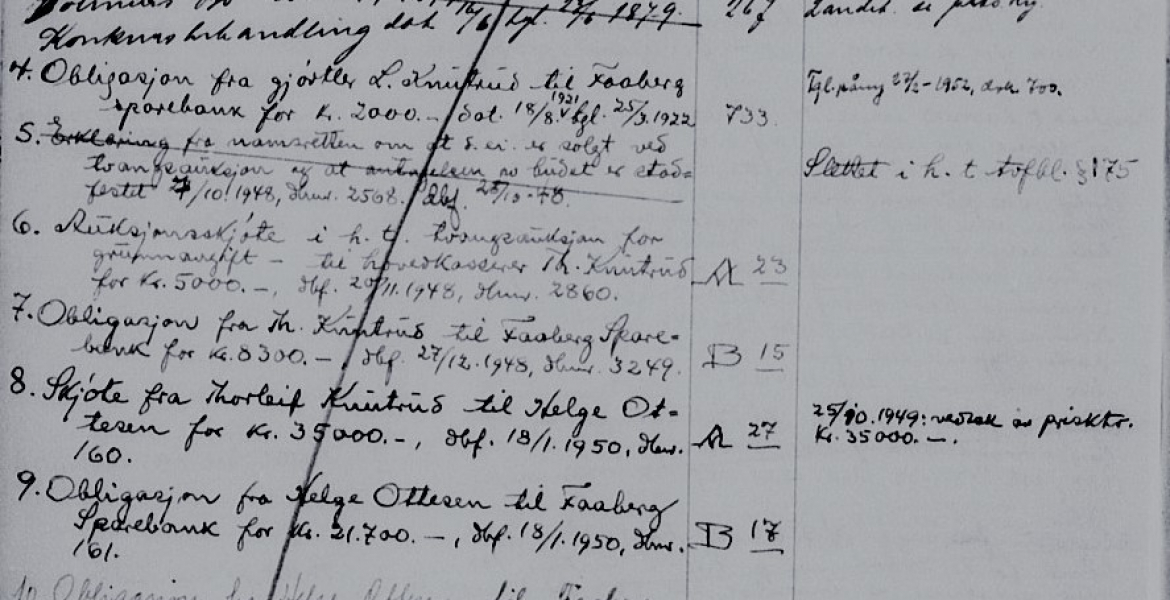 1879. 267
Konkursbehandling dat.
4. Obligasjon fra gjørtler L. Knutrud til Faaberg
sparebank for kr. 2000.-, dat. 18/8.1921 tgl. 25/3.1922 733 Tgl. påny 1952, dnr. 700.
5. Erklæring fra namsretten om at d. ei. er solgt ved
tvangsauksjon og at antagelsen av budet er stad-
festet /10.1948, dnr. 2568. dbf. 28/10-48. Slettet i h. t. tgfbl. § 175
6. Auksjonsskjøte i h. t. tvangsauksjon for
grunnavgift - til hovedkasserer Th. Knutrud A 23
for kr. 5000.-, dbf. 20/11.1948, dnr. 2860.
7. Obligasjon fra Th. Knutrud til Faaberg Spare-
bank for kr. 8300.-, dbf. 27/12.1948, dnr. 3249. B 15
8. Skjøte fra Thorleif Knutrud til Helge Ot-
tesen for kr. 35000.-, dbf. 18/1.1950, dnr. A 27 25/10.1949: vedtak av prisktr.
160. kr. 35000.-.
9. Obligasjon fra Helge Ottesen til Faaberg
Sparebank for kr. 21.700.-, dbf. 18/1.1950, dnr. B 17
161.
10. Obligasjon fra Helge Ottesen til